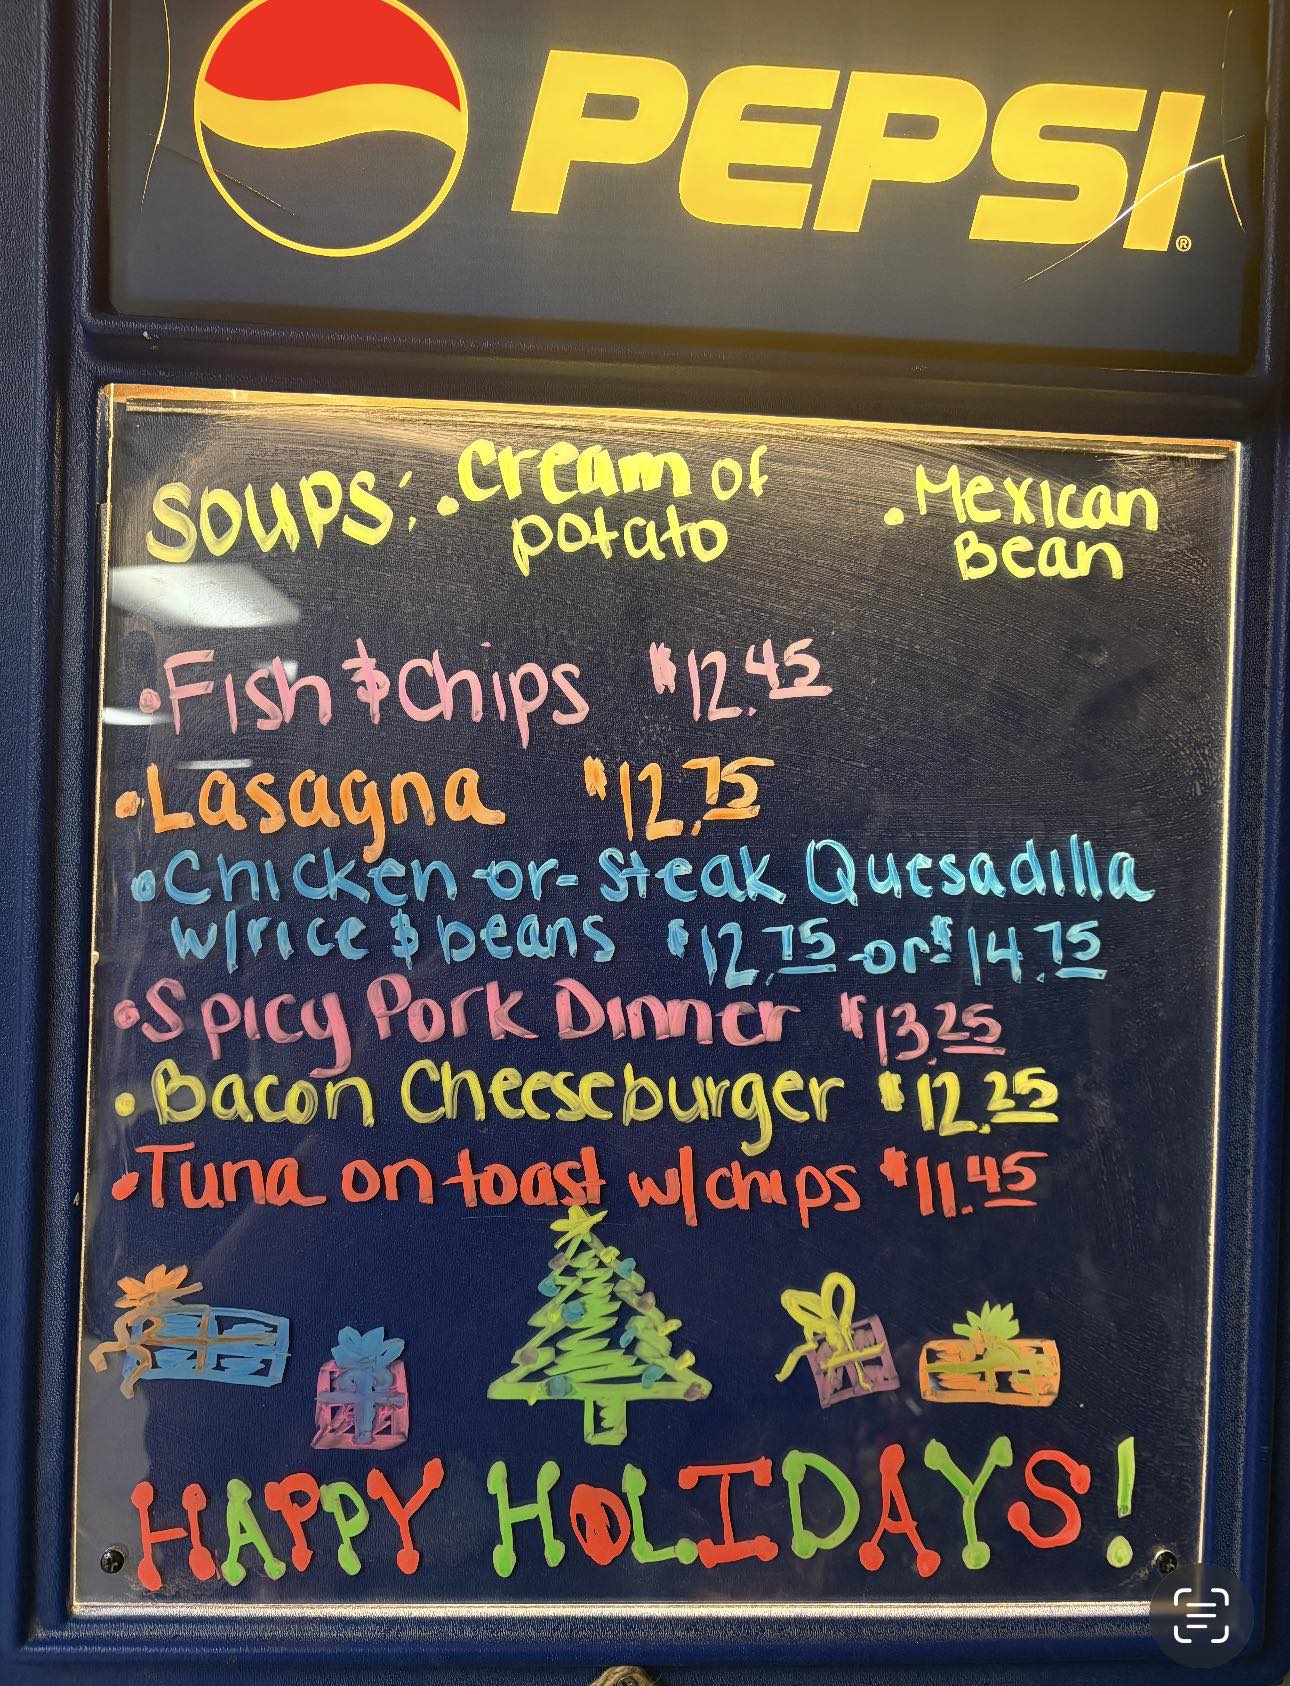 PEPSI®
SOUPS: • Cream of potato • Mexican Bean
• Fish & Chips $12.45
• Lasagna $12.75
• Chicken -or- Steak Quesadilla
w/rice & beans $12.75 -or- $14.75
• Spicy Pork Dinner $13.25
• Bacon Cheeseburger $12.25
• Tuna on toast w/chips $11.45
HAPPY HOLIDAYS!